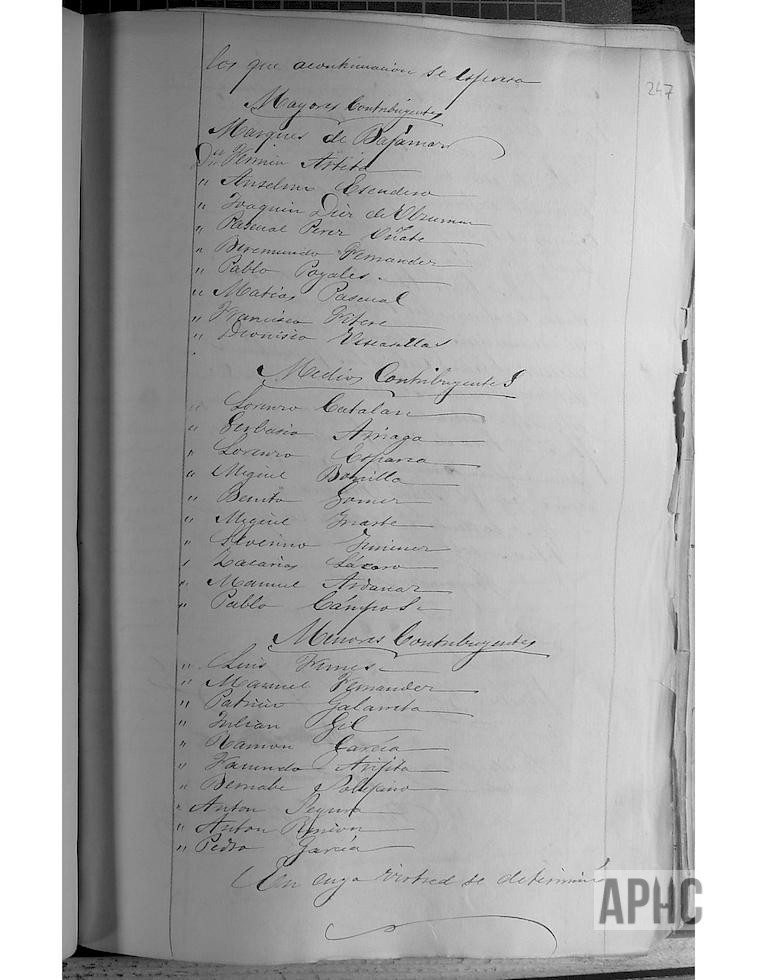 los que acontinuacion se espresa
247
Mayores Contribuyentes
Marques de Bajamar
Dn Fermin Artita
" Anselmo Escudero
" Joaquin Diez de Ulzurrun
" Pascual Perez Oñate
" Beremundo Fernandez
" Pablo Poyales
" Matias Pascual
" Francisco Fitere
" Dionisio
Medios Contribuyentes
" Lorenzo Catalan
" Gerbasio Arriaga
" Lorenzo Esparza
" Miguel Bonilla
" Benito Gomez
" Miguel Iriarte
" Severino Jimenez
" Zacarias Lázaro
" Manuel Ardanaz
" Pablo Campos
Menores Contribuyentes
" Luis Funes
" Manuel Fernandez
" Patricio Galarreta
" Julian Gil
" Ramon Garcia
" Facundo Arijita
" Bernabe
" Anton Segura
" Anton Rincon
" Pedro Garcia
En cuya virtud se determinó
APHC